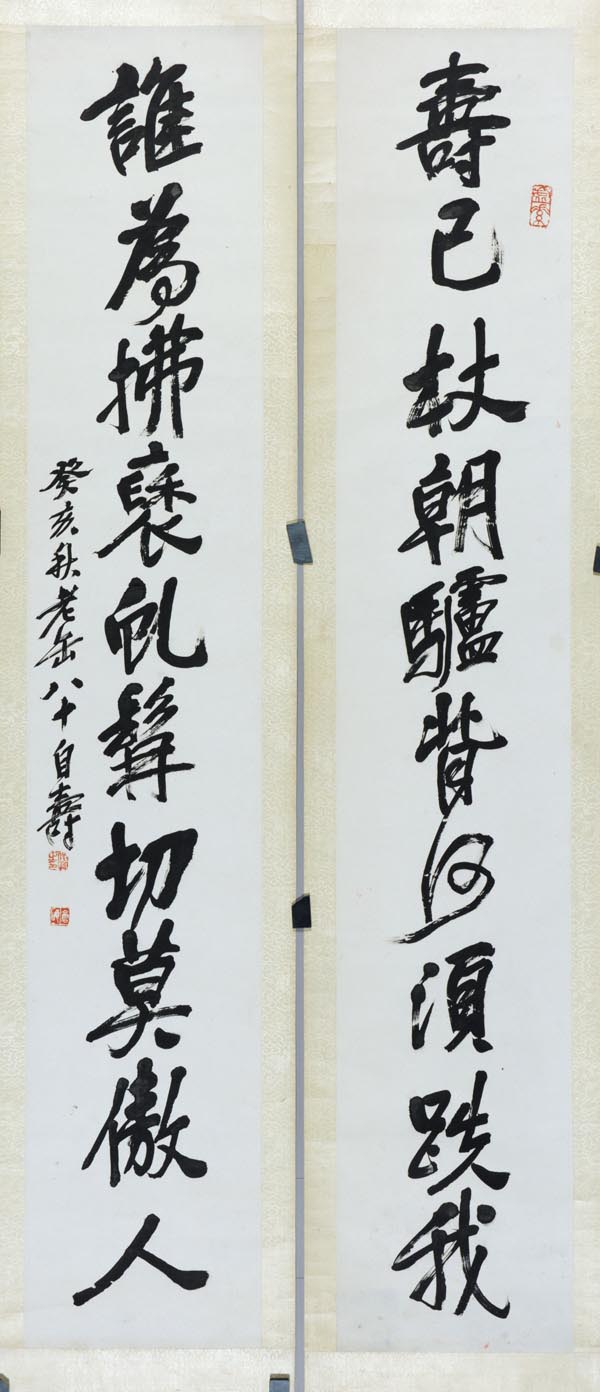 壽已杖朝驢背何須跌我
誰為拂褎虬髯切莫傲人
癸亥秋老缶八十自壽